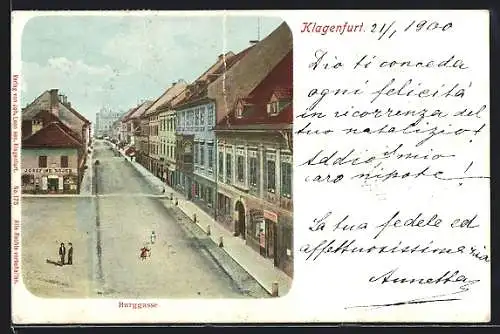 Klagenfurt. 21/1, 1900
Dio ti conceda
ogni felicità
in ricorrenza del
tuo natalizio!
Addio mio
caro nipote!
La tua fedele ed
affettuosissima zia
Annetta
JOSEFINE
Burggasse
Verlag von Joh. Leon sen. Klagenfurt. No. 175
Alle Rechte vorbehalten.